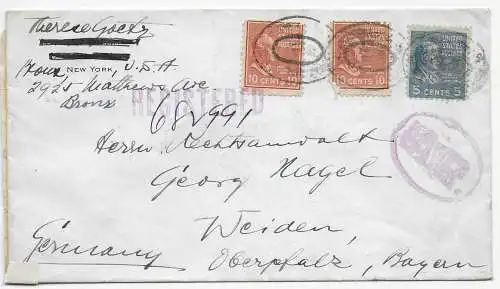 Therese Goetz
NEW YORK, U.S.A
2925 Matthews Ave
Bronx
REGISTERED
681991
UNITED STATES POSTAGE
10 CENTS 10
UNITED STATES POSTAGE
10 CENTS 10
UNITED STATES POSTAGE
5 CENTS 5
Herrn Rechtsanwalt
Georg Nagel
Weiden,
Germany Oberpfalz, Bayern